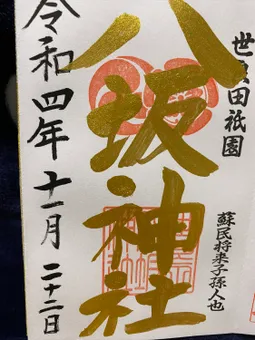 世良田祇園
蘇民将来子孫人也
八坂神社
令和四年十一月二十二日